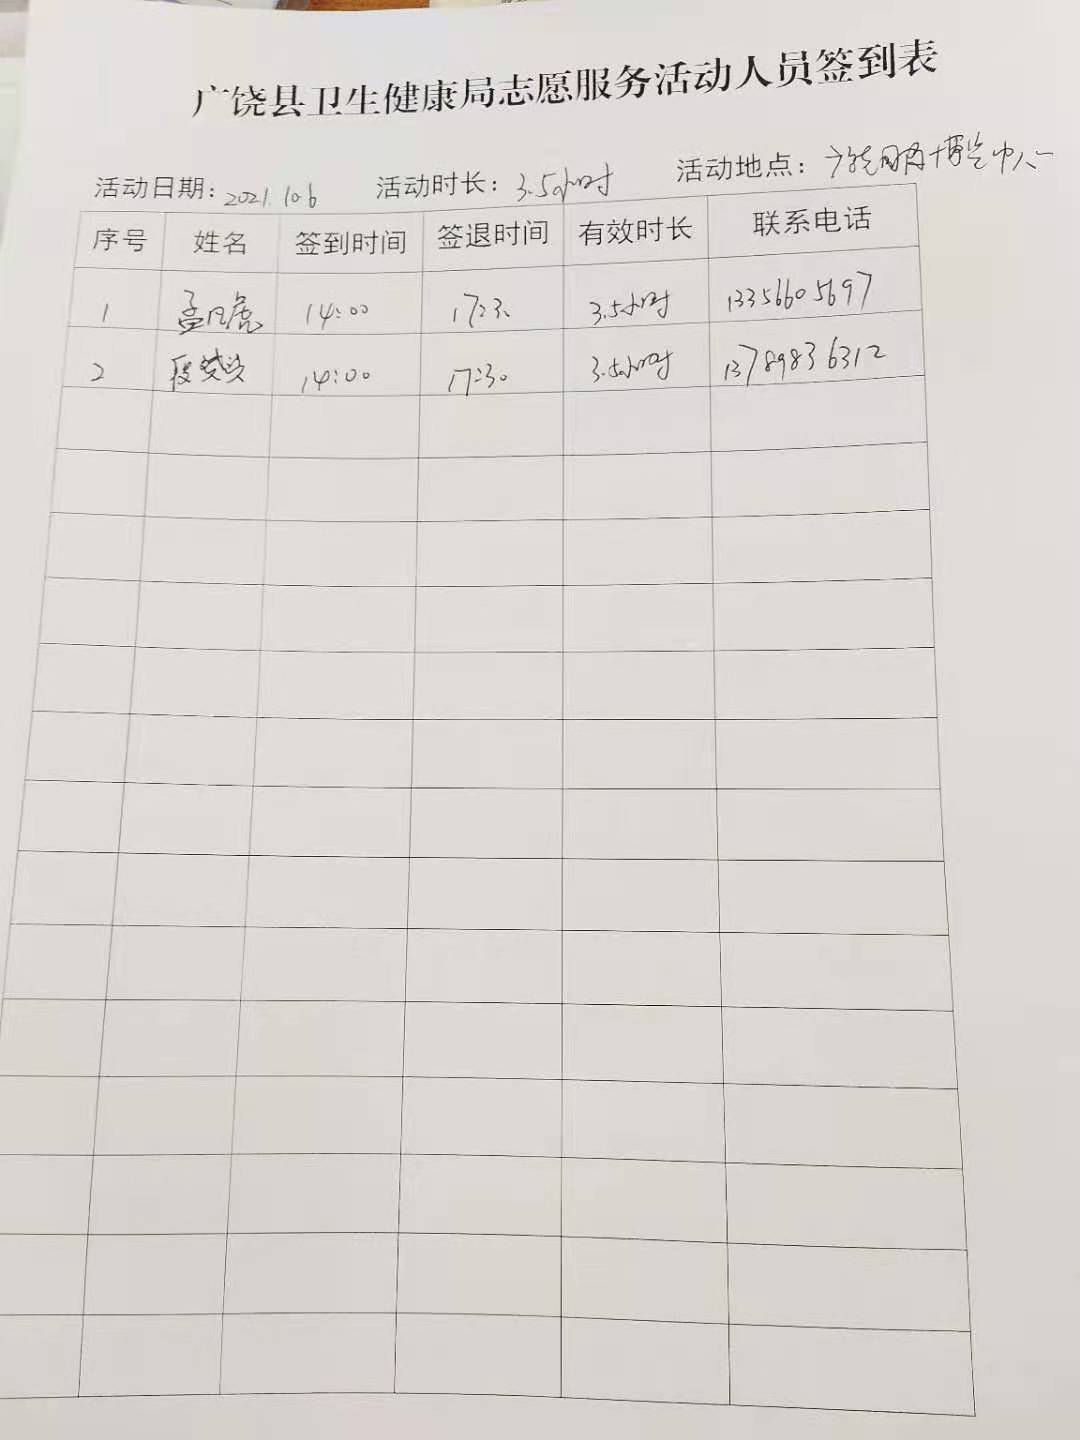 广饶县卫生健康局志愿服务活动人员签到表
活动日期：2021.10.6 活动时长：3.5小时 活动地点：广饶国际博览中心
序号 姓名 签到时间 签退时间 有效时长 联系电话
1 孟凡虎 14:00 17:30 3.5小时 13356605697
2 段 14:00 17:30 3.5小时 13789836312